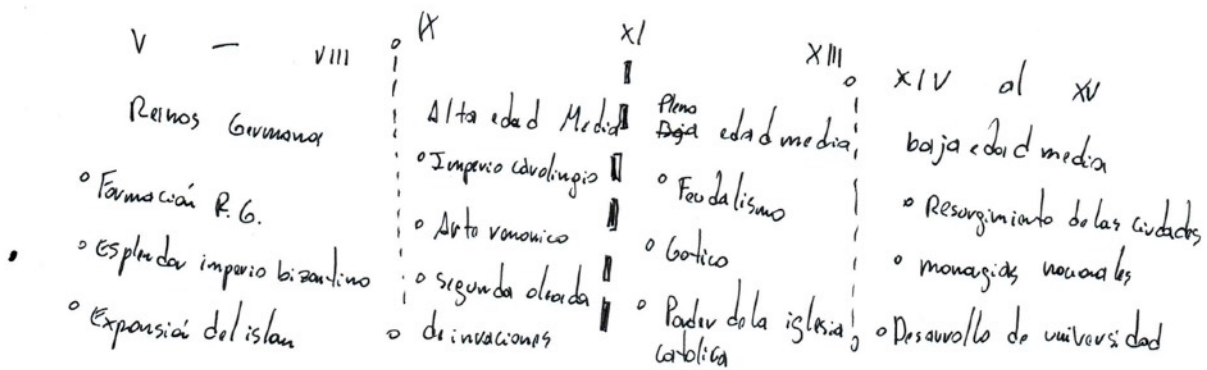 V — VIII
Reinos Germanos
° Formación R.G.
° Esplendor imperio bizantino
° Expansión del islan
IX
Alta edad Media
° Imperio carolingio
° Arte romonico
° segunda oleada
° de invaciones
XI
Plena
Baja edad media
° Feudalismo
° Gotico
° Poder de la iglesia
catolica
XIII
XIV al XV
baja edad media
° Resurgimiento de las ciudades
° monagias nacionales
° Desarrollo de universidad